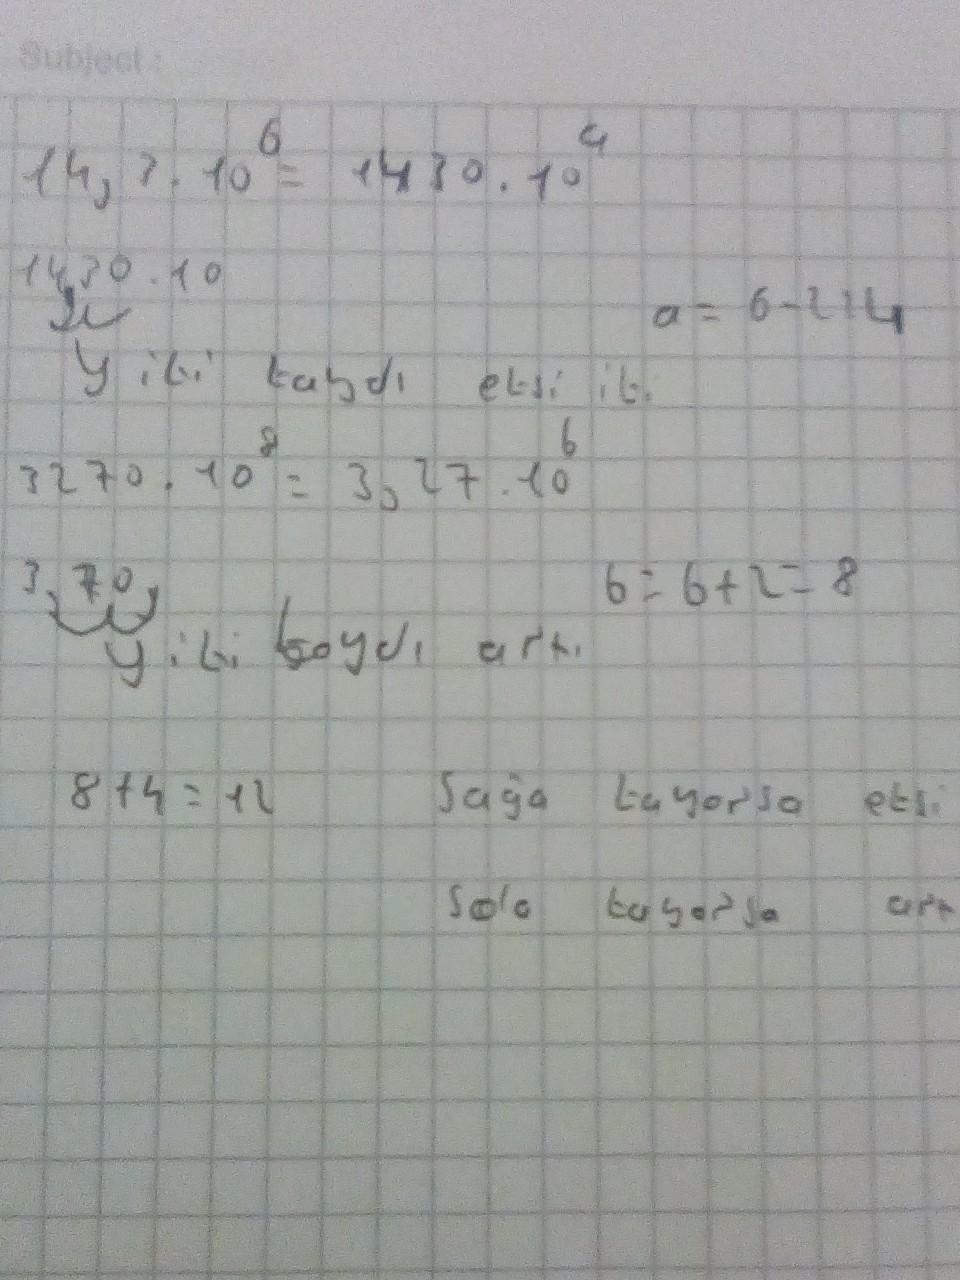 Subject :
14,3.10⁶ = 1430.10⁴
1430.10
a = 6-2=4
y iki kaydı eksi iki
3270.10⁸ = 3,27.10⁶
3,70,
6 = 6+2 = 8
y iki kaydı artı
8+4=12 Sağa kayarsa eksi
Sola kayarsa art